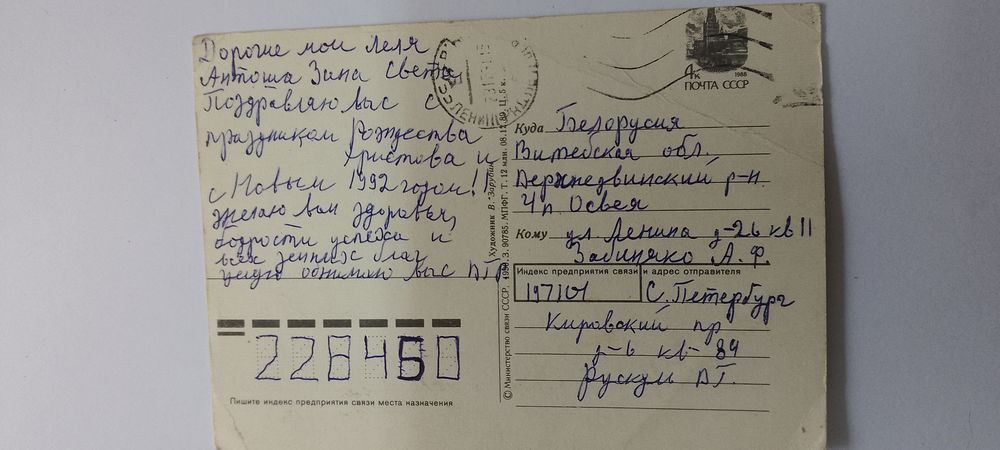 Дорогие мои Леля
Антоша Зина Света
Поздравляю вас с
праздником Рождества
Христова и
с Новым 1992 годом!!
желаю вам здоровья,
бодрости успеха и
всех земных благ
целую обнимаю вас
4к
1988
ПОЧТА СССР
Куда Белорусия
Витебская обл.
Верхнедвинский р-н.
Чп. Освея
Кому ул Ленина д-26 кв 11
Забиняко А. Ф.
Индекс предприятия связи и адрес отправителя
197101 С. Петербург
Кировский пр
д-6 кв-89
Рускул
228450
Пишите индекс предприятия связи места назначения
© Министерство связи СССР, З. 90785. МПФГ. Т. 12 млн. 08.12.89. Ц. 5 к.
Художник В. Зарубин